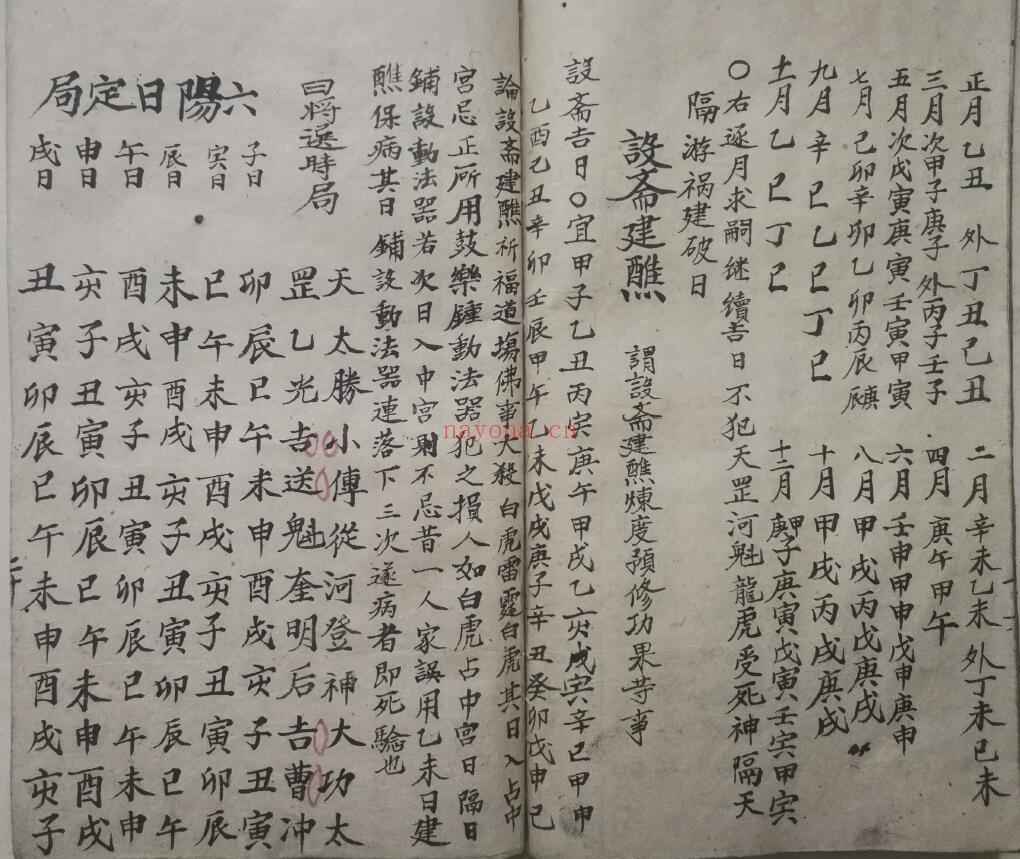 正月乙丑 外丁丑己丑 二月辛未乙未外丁未己未
三月次甲子庚子外丙子壬子 四月庚午甲午
五月次戊寅庚寅壬寅甲寅 六月壬申甲申戊申庚申
七月己卯辛卯乙卯丙辰 八月甲戌丙戊庚戌
九月辛巳乙巳丁巳 十月甲戌丙戌庚戌
十一月乙巳丁巳 十二月甲子庚子庚寅戊寅壬寅甲寅
〇右逐月求嗣继續吉日不犯天罡河魁龍虎受死神隔天
隔游祸建破日
設斋建醮 謂設斋建醮煉度預修功果䓁事
設斋吉日〇宜甲子乙丑丙寅庚午甲戌乙亥戊寅辛巳甲申
乙酉己丑辛卯壬辰甲午乙未戊戌庚子辛丑癸卯戊申己
論設斋建醮祈福道場佛事大殺白虎雷霆白虎其日入占中
宮忌正所用鼓樂鍾動法器犯之損人如白虎占中宮日隔日
鋪設動法器若次日入中宮則不忌昔一人家誤用乙未日建
醮保病其日鋪設動法器連落下三次遂病者即死驗也
曰将選時局
天太勝小傳從河登神大功太
罡乙光吉送魁奎明后吉曹冲
六陽日定局
子日 卯辰巳午未申酉戌亥子丑寅
寅日 巳午未申酉戌亥子丑寅卯辰
辰日 未申酉戌亥子丑寅卯辰巳午
午日 酉戌亥子丑寅卯辰巳午未申
申日 亥子丑寅卯辰巳午未申酉戌
戌日 丑寅卯辰巳午未申酉戌亥子
nayona.cn